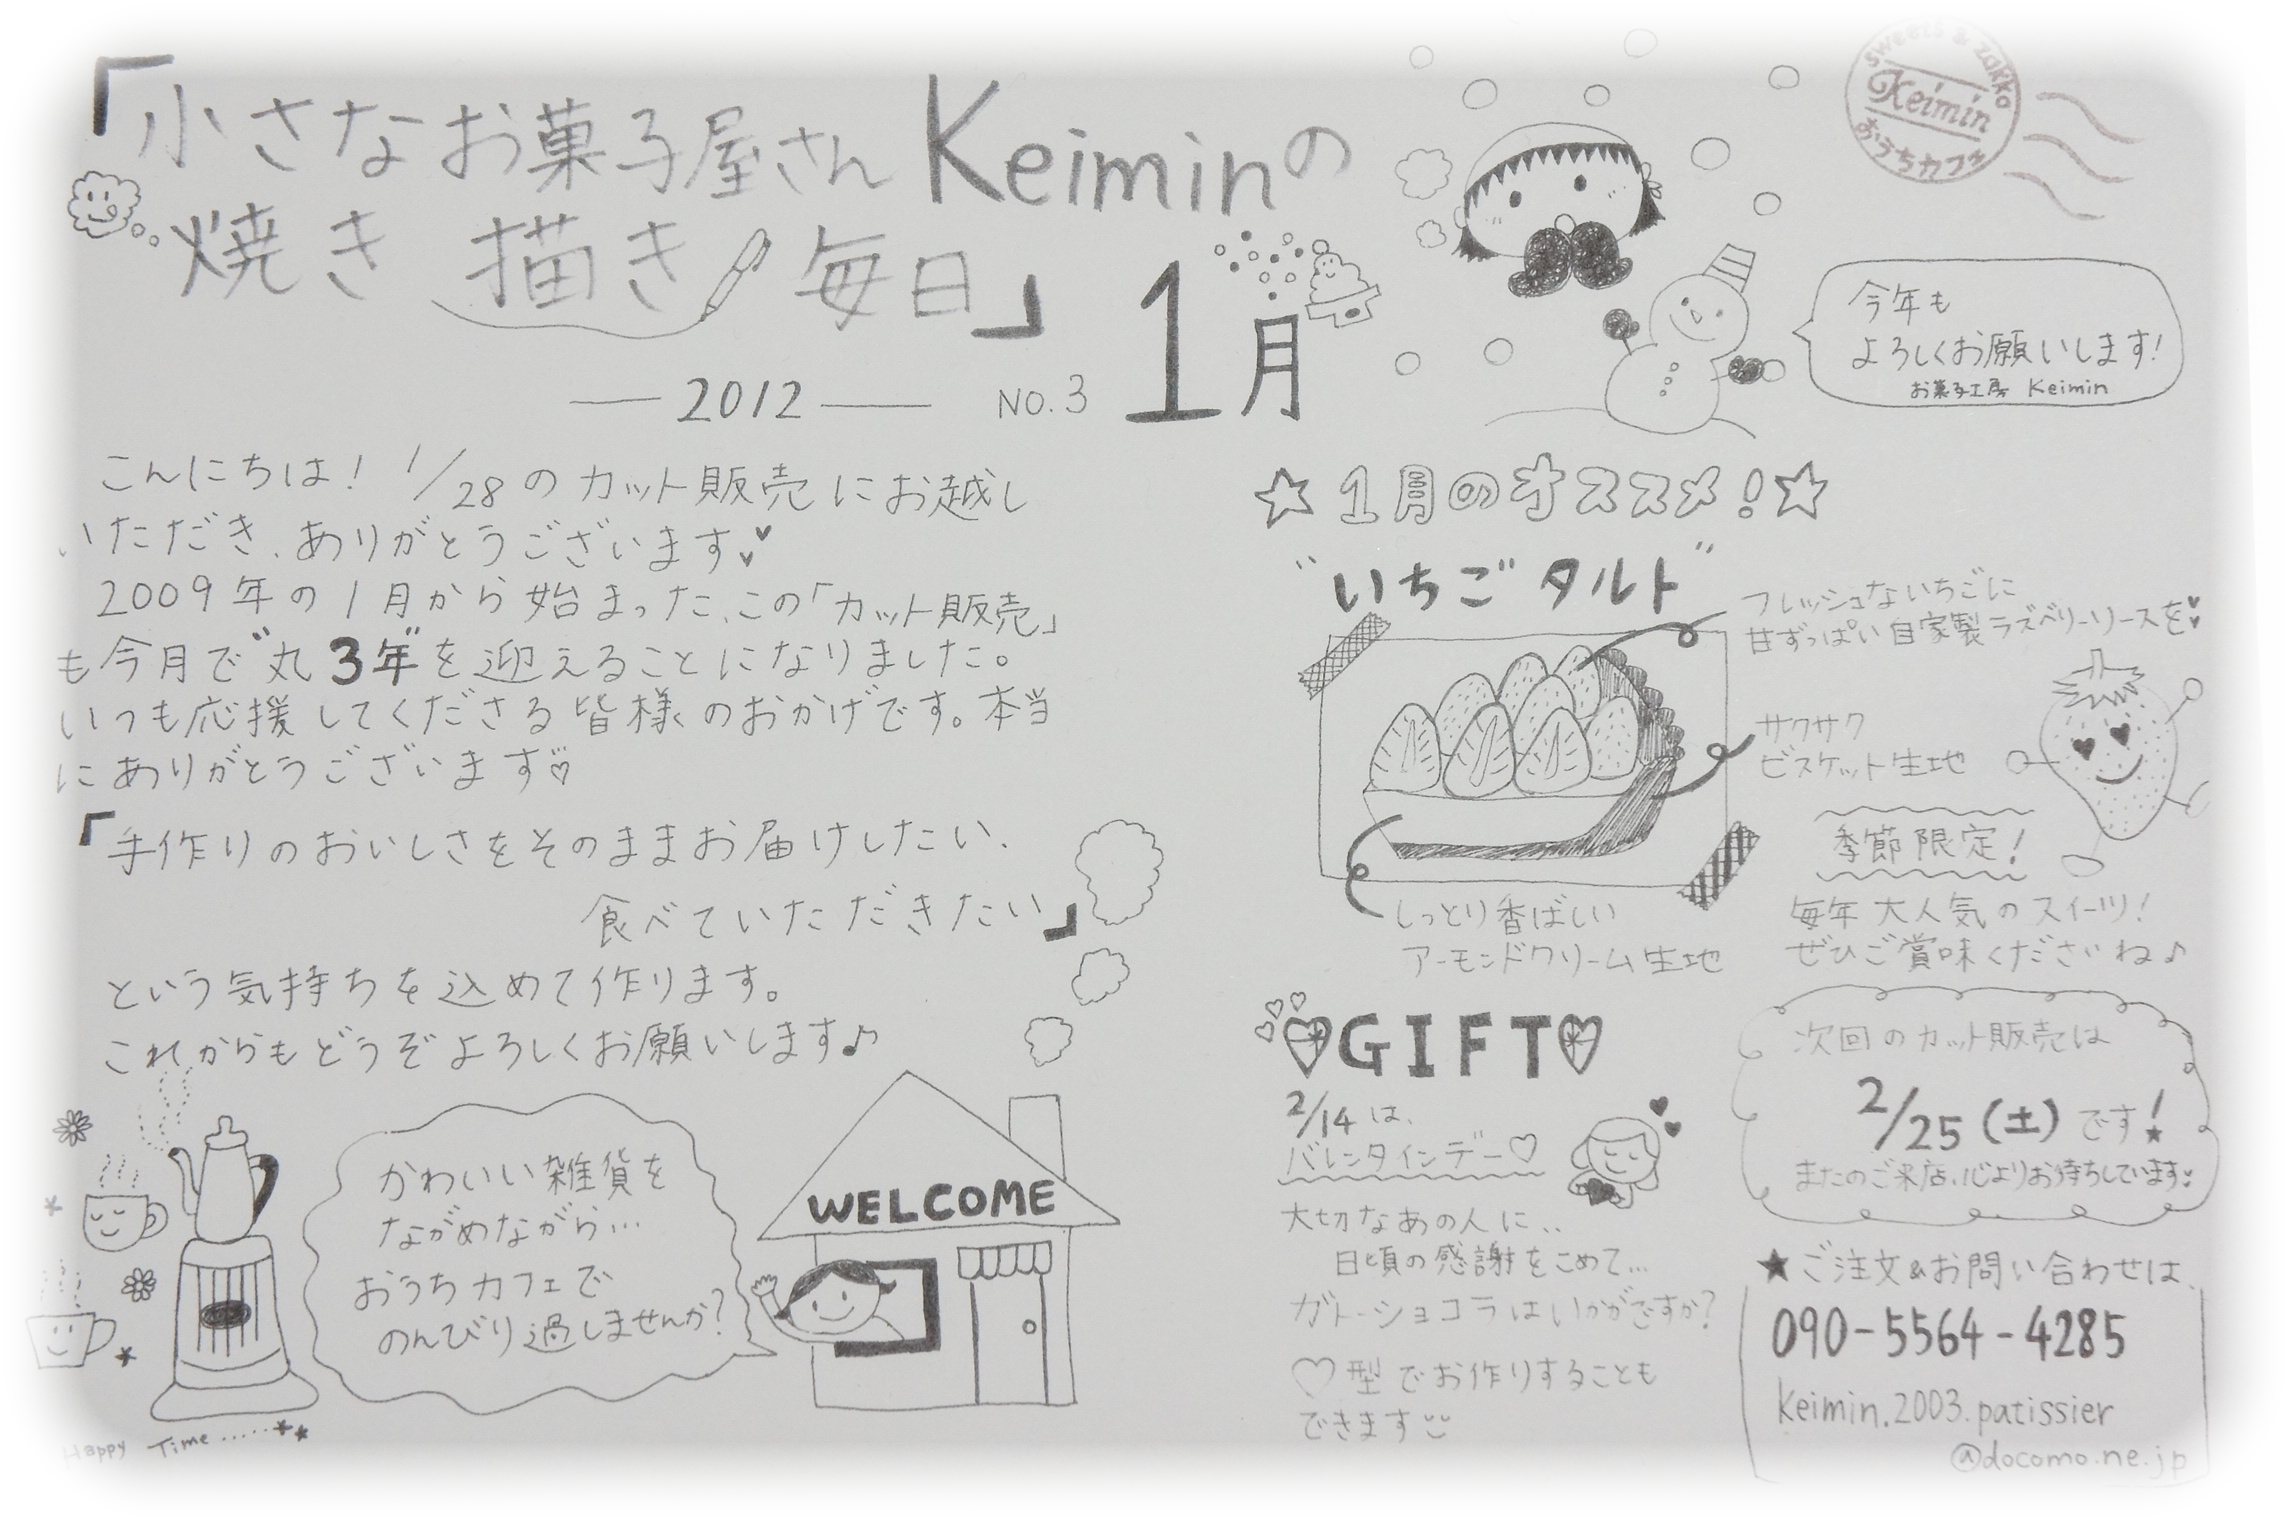 「小さなお菓子屋さん Keiminの
焼き 描き 毎日」 1月
2012 NO.3
sweets & zakka
Keimin
おうちカフェ
今年も
よろしくお願いします!
お菓子工房 Keimin
こんにちは! 1/28 の カット販売 にお越し
いただき、ありがとうございます
2009年の1月から始まった、この「カット販売」
も今月で"丸3年"を迎えることになりました。
いつも応援してくださる皆様のおかげです。本当
にありがとうございます♡
「手作りのおいしさをそのままお届けしたい、
食べていただきたい」
という気持ちを込めて作ります。
これからもどうぞよろしくお願いします♪
かわいい雑貨を
ながめながら…
おうちカフェで
のんびり過しませんか?
WELCOME
Happy Time .....**
☆1月のオススメ!☆
"いちごタルト"
フレッシュないちごに
甘ずっぱい自家製ラズベリーソースを
サクサク
ビスケット生地
しっとり香ばしい
アーモンドクリーム生地
季節限定!
毎年大人気のスイーツ!
ぜひご賞味くださいね♪
♡GIFT♡
2/14は、
バレンタインデー♡
大切なあの人に、、
日頃の感謝をこめて…
ガトーショコラはいかがですか?
♡型でお作りすることも
できます
次回のカット販売は
2/25(土)です!
またのご来店、心よりお待ちしています
★ご注文&お問い合わせは、
090-5564-4285
keimin.2003.patissier
@docomo.ne.jp